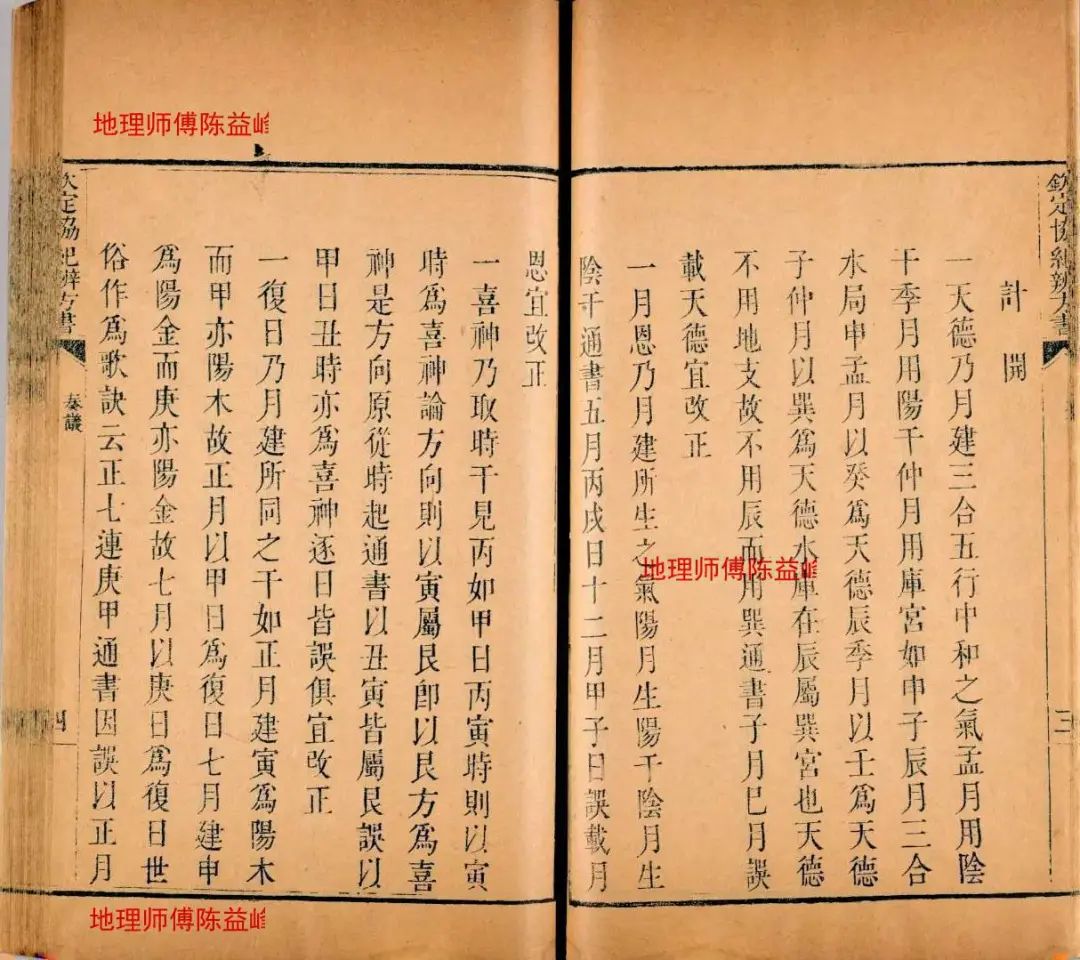 欽定協紀辨方書
三
計開
一天德乃月建三合五行中和之氣孟月用陰
干季月用陽干仲月用庫宮如申子辰月三合
水局申孟月以癸爲天德辰季月以壬爲天德
子仲月以巽爲天德水庫在辰屬巽宮也天德
不用地支故不用辰而用巽通書子月巳月誤
載天德宜改正
一月恩乃月建所生之氣陽月生陽干陰月生
陰干通書五月丙戌日十二月甲子日誤載月
恩宜改正
一喜神乃取時干見丙如甲日丙寅時則以寅
時爲喜神論方向則以寅屬艮卽以艮方爲喜
神是方向原從時起通書以丑寅皆屬艮誤以
甲日丑時亦爲喜神逐日皆誤俱宜改正
一復日乃月建所同之干如正月建寅爲陽木
而甲亦陽木故正月以甲日爲復日七月建申
爲陽金而庚亦陽金故七月以庚日爲復日世
俗作爲歌訣云正七連庚甲通書因誤以正月
欽定協紀辨方書
奏議
四
地理师傅陈益峰
地理师傅陈益峰
地理师傅陈益峰